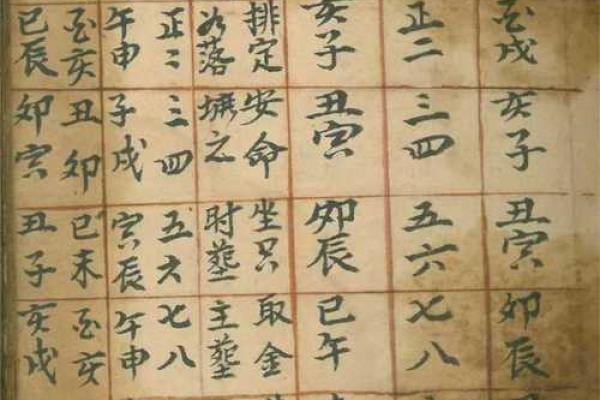 酉戌亥子丑寅卯辰
正二三四五六七八
亥子丑寅卯辰巳午
排定安命坐只取金
落之时葬主葬
正二三四五六七八
午申子戌寅辰午申
酉亥丑卯巳未酉亥
巳辰卯寅丑子亥戌